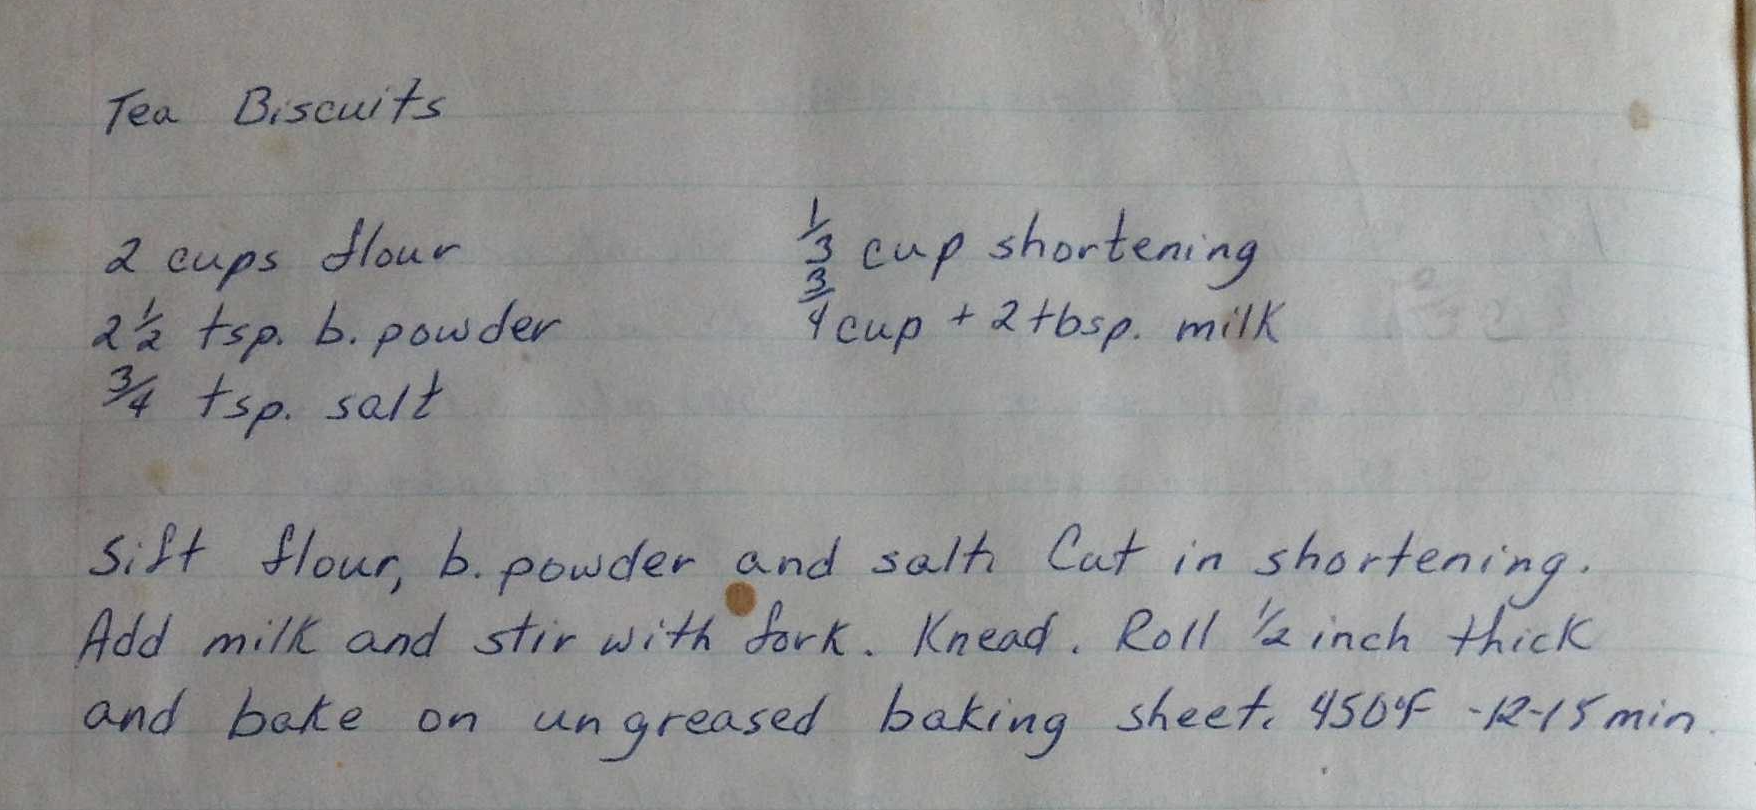 Tea Biscuits
2 cups flour
2 1/2 tsp. b. powder
3/4 tsp. salt
1/3 cup shortening
3/4 cup + 2 tbsp. milk
Sift flour, b. powder and salt. Cut in shortening.
Add milk and stir with fork. Knead. Roll 1/2 inch thick
and bake on ungreased baking sheet. 450°F - 12-15 min.